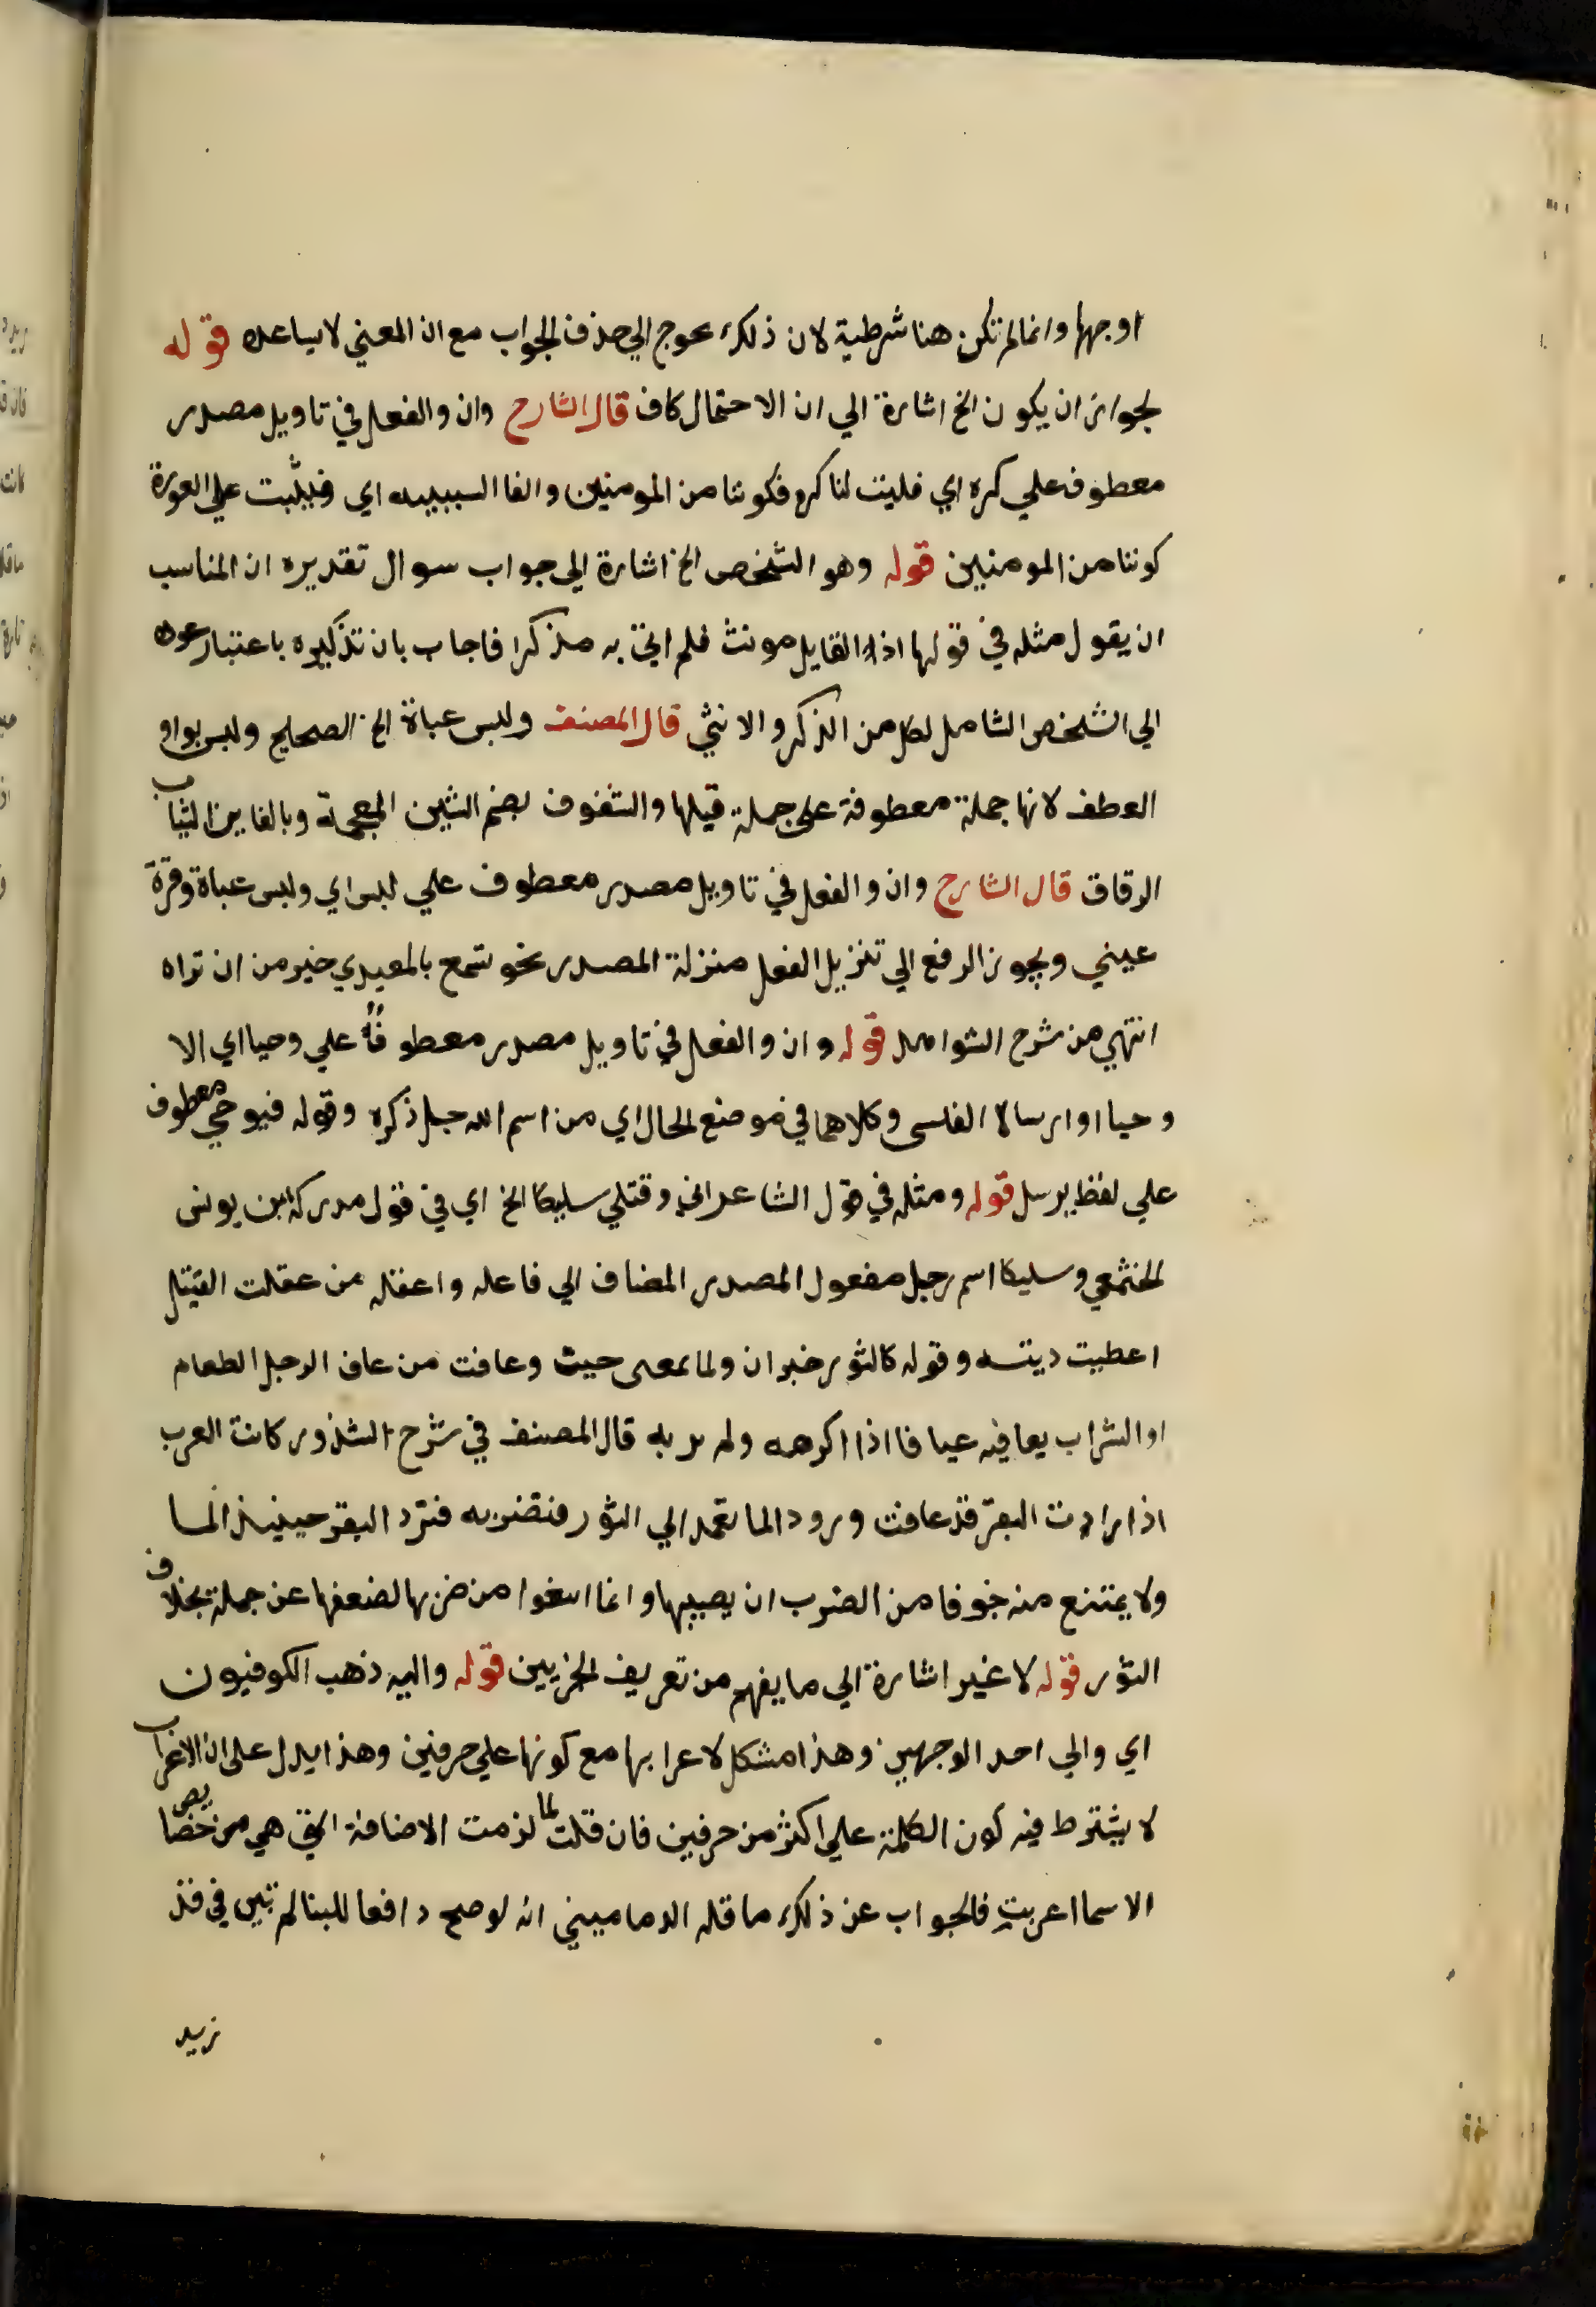 اوجهها وانما لم تكن هنا شرطية لان ذلك يحوج الي حذف الجواب مع ان المعني لا يساعده قوله
لجواز ان يكون الخ اشارة الي ان الاحتمال كاف قال الشارح وان والفعل في تاويل مصدر
معطوف علي كره اي فليت لنا كره فكوننا من المومنين والفا السببيه اي فيثبت علي العودة
كوننا من المومنين قوله وهو الشخص الخ اشارة الي جواب سوال تقديره ان المناسب
ان يقول مثله في قولها اذ القايل مونث فلم اتي به مذكرا فاجاب بان تذكيره باعتبار عوده
الي الشخص الشامل لكل من الذكر والانثي قال المصنف ولبس عباة الخ الصحيح ولبس بواو
العطف لانها جملة معطوفة علي جملة قبلها والشفوف بضم الشين المعجمة وبالفاين الثياب
الرقاق قال الشارح وان والفعل في تاويل مصدر معطوف علي لبس اي ولبس عباة وقرة
عيني ويجوز الرفع الي تنزيل الفعل منزلة المصدر نحو تسمع بالمعيدي خير من ان تراه
انتهي من شرح الشواهد قوله وان والفعل في تاويل مصدر معطوفا علي وحيا اي الا
وحيا او ارسالا وكلاهما في موضع الحال اي من اسم الله جل ذكره وقوله فيوحي معطوف
علي لفظ يرسل قوله ومثله في قول الشاعر اني وقتلي سليكا الخ اي في قول مدركة ابن يونس
الخثمعي وسليكا اسم رجل مفعول المصدر المضاف الي فاعله واعقله من عقلت القتيل
اعطيت ديته وقوله كالثور خبر ان ولما بمعني حيث وعافت من عاف الرجل الطعام
او الشراب يعافيه عيافا اذا اكرهه ولم يرد به قال المصنف في شرح الشذور كانت العرب
اذا رادت البقر قد عافت ورود الما تعمد الي الثور فتضربه فترد البقر حينيذ الما
ولا يمتنع منه خوفا من الضرب ان يصيبها وانما امتنعوا من ضربها لضعفها عن حمله بخلاف
الثور قوله لا غير اشارة الي ما يفهم من تعريف الجزيين قوله واليه ذهب الكوفيون
اي والي احد الوجهين وهذا مشكل لاعرابها مع كونها علي حرفين وهذا يدل علي ان الاعراب
لا يشترط فيه كون الكلمة علي اكثر من حرفين فان قلت لما لزمت الاضافة التي هي من خصايص
الاسما اعربت فالجواب عن ذلك ما قله الدماميني انه لو صح دافعا للبنا لم تبن في قد
زيد